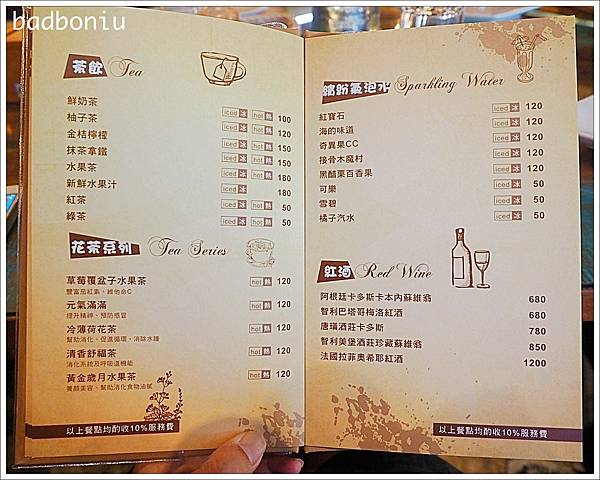 badboniu
茶飲 Tea
鮮奶茶 iced 冰 hot 熱 100
柚子茶 iced 冰 hot 熱 120
金桔檸檬 iced 冰 hot 熱 150
抹茶拿鐵 iced 冰 hot 熱 150
水果茶 iced 冰 hot 熱 180
新鮮水果汁 iced 冰 180
紅茶 iced 冰 hot 熱 50
綠茶 iced 冰 hot 熱 50
花茶系列 Tea Series
草莓覆盆子水果茶 hot 熱 120
豐富茄紅素、維他命C
元氣滿滿 hot 熱 120
提升精神、預防感冒
冷薄荷花茶 hot 熱 120
幫助消化、促進循環、消除水腫
清香舒福茶 hot 熱 120
消化系統及呼吸道機能
黃金歲月水果茶 hot 熱 120
養顏美容、幫助消化食物油膩
以上餐點均酌收10%服務費
繽紛氣泡水 Sparkling Water
紅寶石 iced 冰 120
海的味道 iced 冰 120
奇異果CC iced 冰 120
接骨木魔村 iced 冰 120
黑醋栗百香果 iced 冰 120
可樂 iced 冰 50
雪碧 iced 冰 50
橘子汽水 iced 冰 50
紅酒 Red Wine
阿根廷卡多斯卡本內蘇維翁 680
智利巴塔哥梅洛紅酒 680
唐璜酒莊卡多斯 780
智利美堡酒莊珍藏蘇維翁 850
法國拉菲奧希耶紅酒 1200
以上餐點均酌收10%服務費